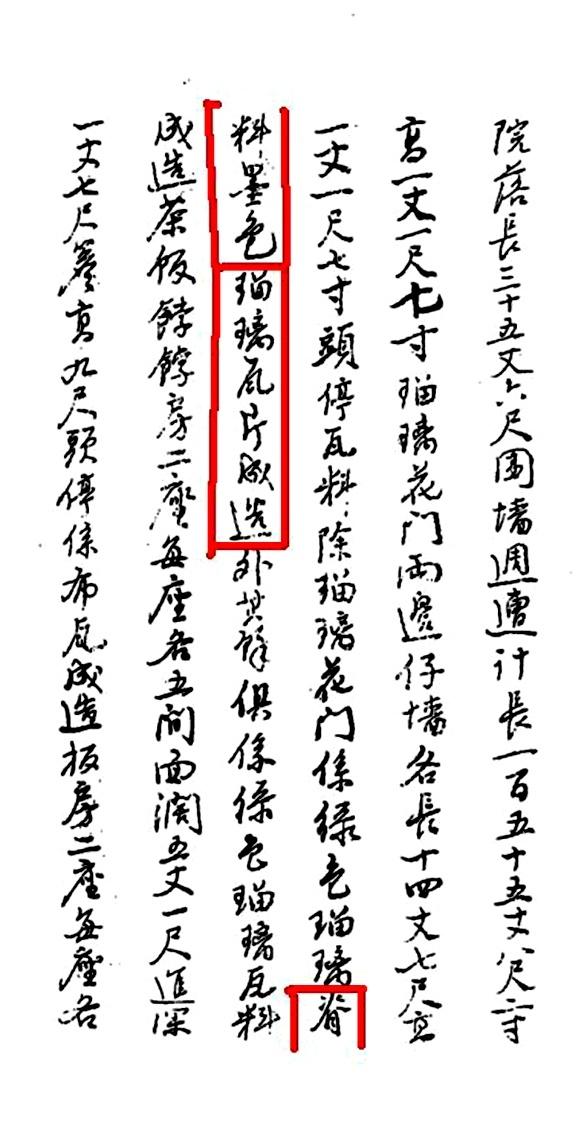 院落長三十五丈六尺圍墻週遭計長一百五十五丈八尺二寸
高一丈一尺七寸瑠璃花门兩邊仔墻各長十四丈七尺高
一丈一尺七寸頭停瓦料除瑠璃花门係绿色瑠璃脊
料墨色瑠璃瓦片成造外其餘俱係绿色瑠璃瓦料
成造茶飯餑餑房二座每座各五间面濶五丈一尺進深
一丈七尺簷高九尺頭停係布瓦成造板房二座每座各